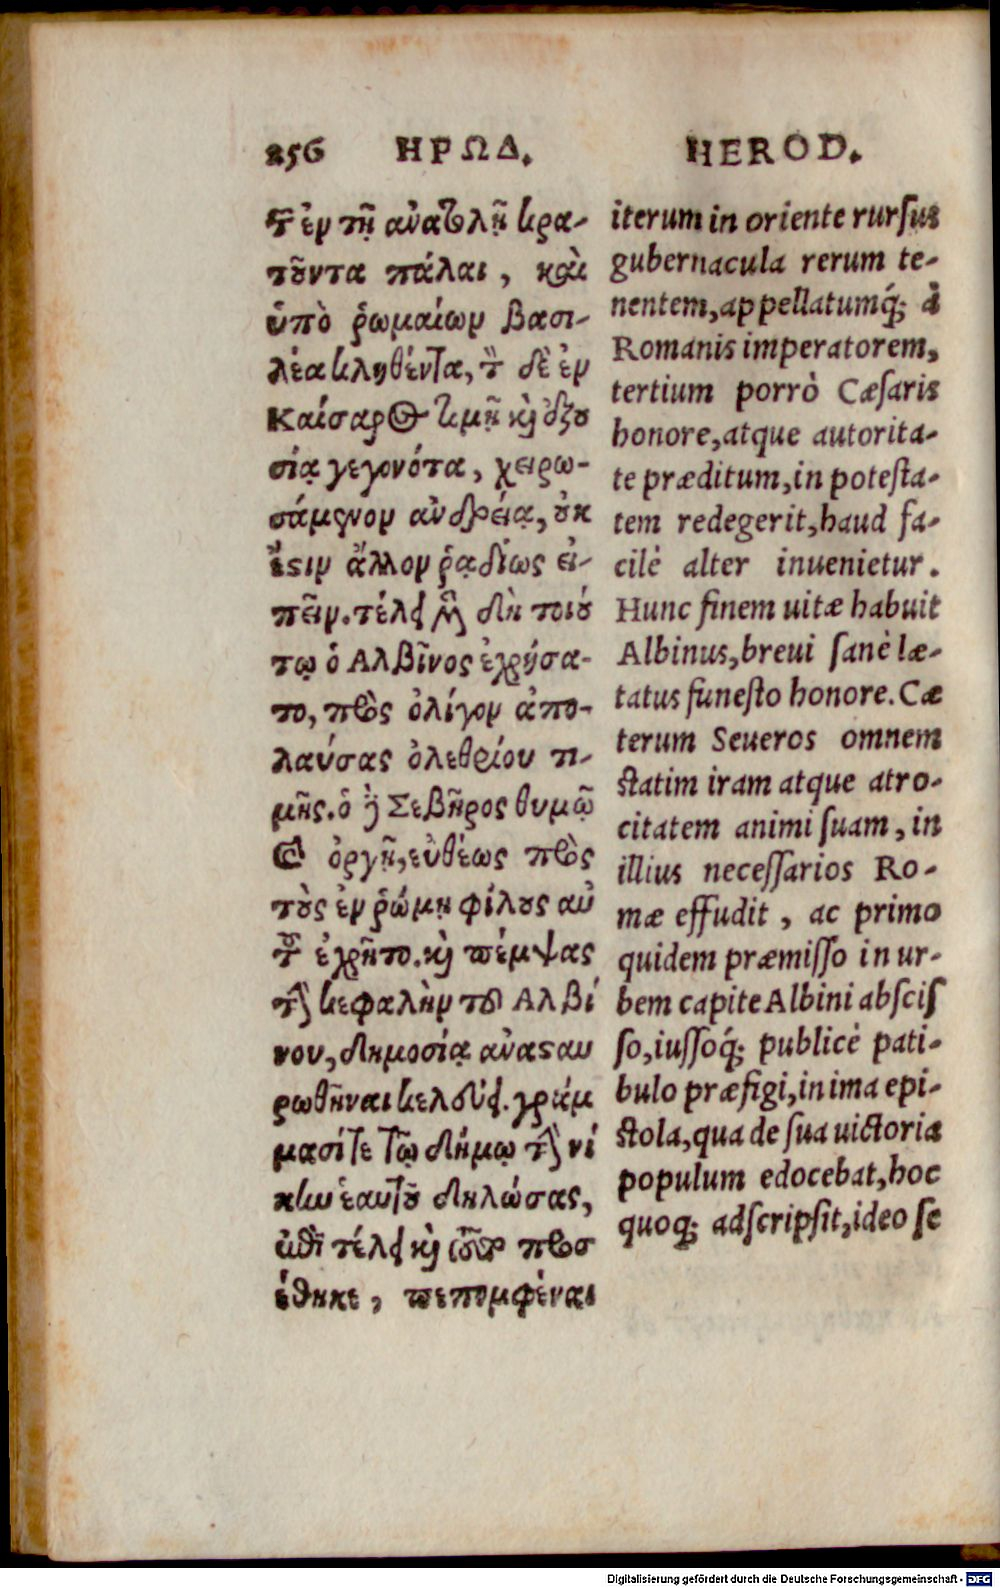 256 ΗΡΩΔ. HEROD.
τ͂ ἐν τῇ ἀνατολῇ κρα-
τοῦντα πάλαι, καὶ
ὑπὸ ῥωμαίων βασι-
λέα κληθέντα, τ̀ δὲ ἐν
Καίσαρος τιμῇ κὶ ὀξου
σίᾳ γεγονότα, χειρω-
σάμενον ἀνδρείᾳ, οὐκ
ἔστιν ἄλλον ῥᾳδίως εἰ-
πεῖν. τέλει μὲν δὴ τοιού
τῳ ὁ Αλβῖνος ἐχρήσα-
το, πρὸς ὀλίγον ἀπο-
λαύσας ὀλεθρίου τι-
μῆς. ὁ δὲ Σεβῆρος θυμῷ
καὶ ὀργῇ, εὐθέως πρὸς
τοὺς ἐν ῥώμῃ φίλους αὐ
τοῦ ἐχρῆτο. κὶ πέμψας
τὴν κεφαλὴν τοῦ Αλβί
νου, δημοσίᾳ ἀνασταυ
ρωθῆναι κελεύει. γράμ
μασί τε τῷ δήμῳ τὴν νί
κην ἑαυτοῦ δηλώσας,
ἐπὶ τέλει κὶ τοῦτο προσ
έθηκε, πεπομφέναι
iterum in oriente rursus
gubernacula rerum te-
nentem, appellatumq́; à
Romanis imperatorem,
tertium porrò Cæsaris
honore, atque autorita-
te præditum, in potesta-
tem redegerit, haud fa-
cilè alter inuenietur.
Hunc finem uitæ habuit
Albinus, breui sanè læ-
tatus funesto honore. Cæ
terum Seueros omnem
statim iram atque atro-
citatem animi suam, in
illius necessarios Ro-
mæ effudit, ac primo
quidem præmisso in ur-
bem capite Albini abscis
so, iussoq́; publicè pati-
bulo præfigi, in ima epi-
stola, qua de sua uictoria
populum edocebat, hoc
quoq; adscripsit, ideo se
Digitalisierung gefördert durch die Deutsche Forschungsgemeinschaft - DFG